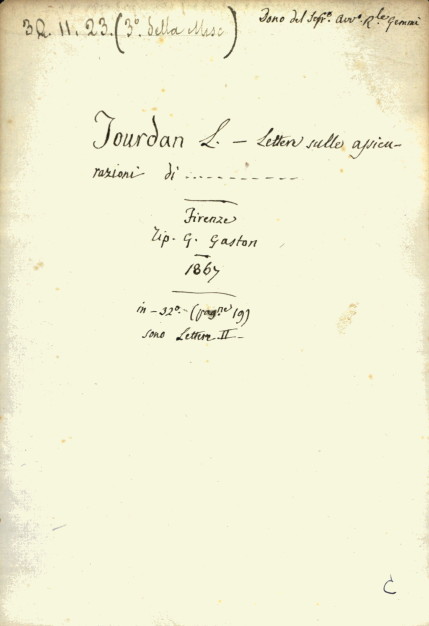 3Q. 11. 23. (3º della Misc)
Dono del Avvº Rle Gemmi
Jourdan L. — Lettere sulle assicu-
razioni di ..........
Firenze
Tip. G. Gaston
1867
in-32º.- (pagne 19)
sono Lettere II-
C